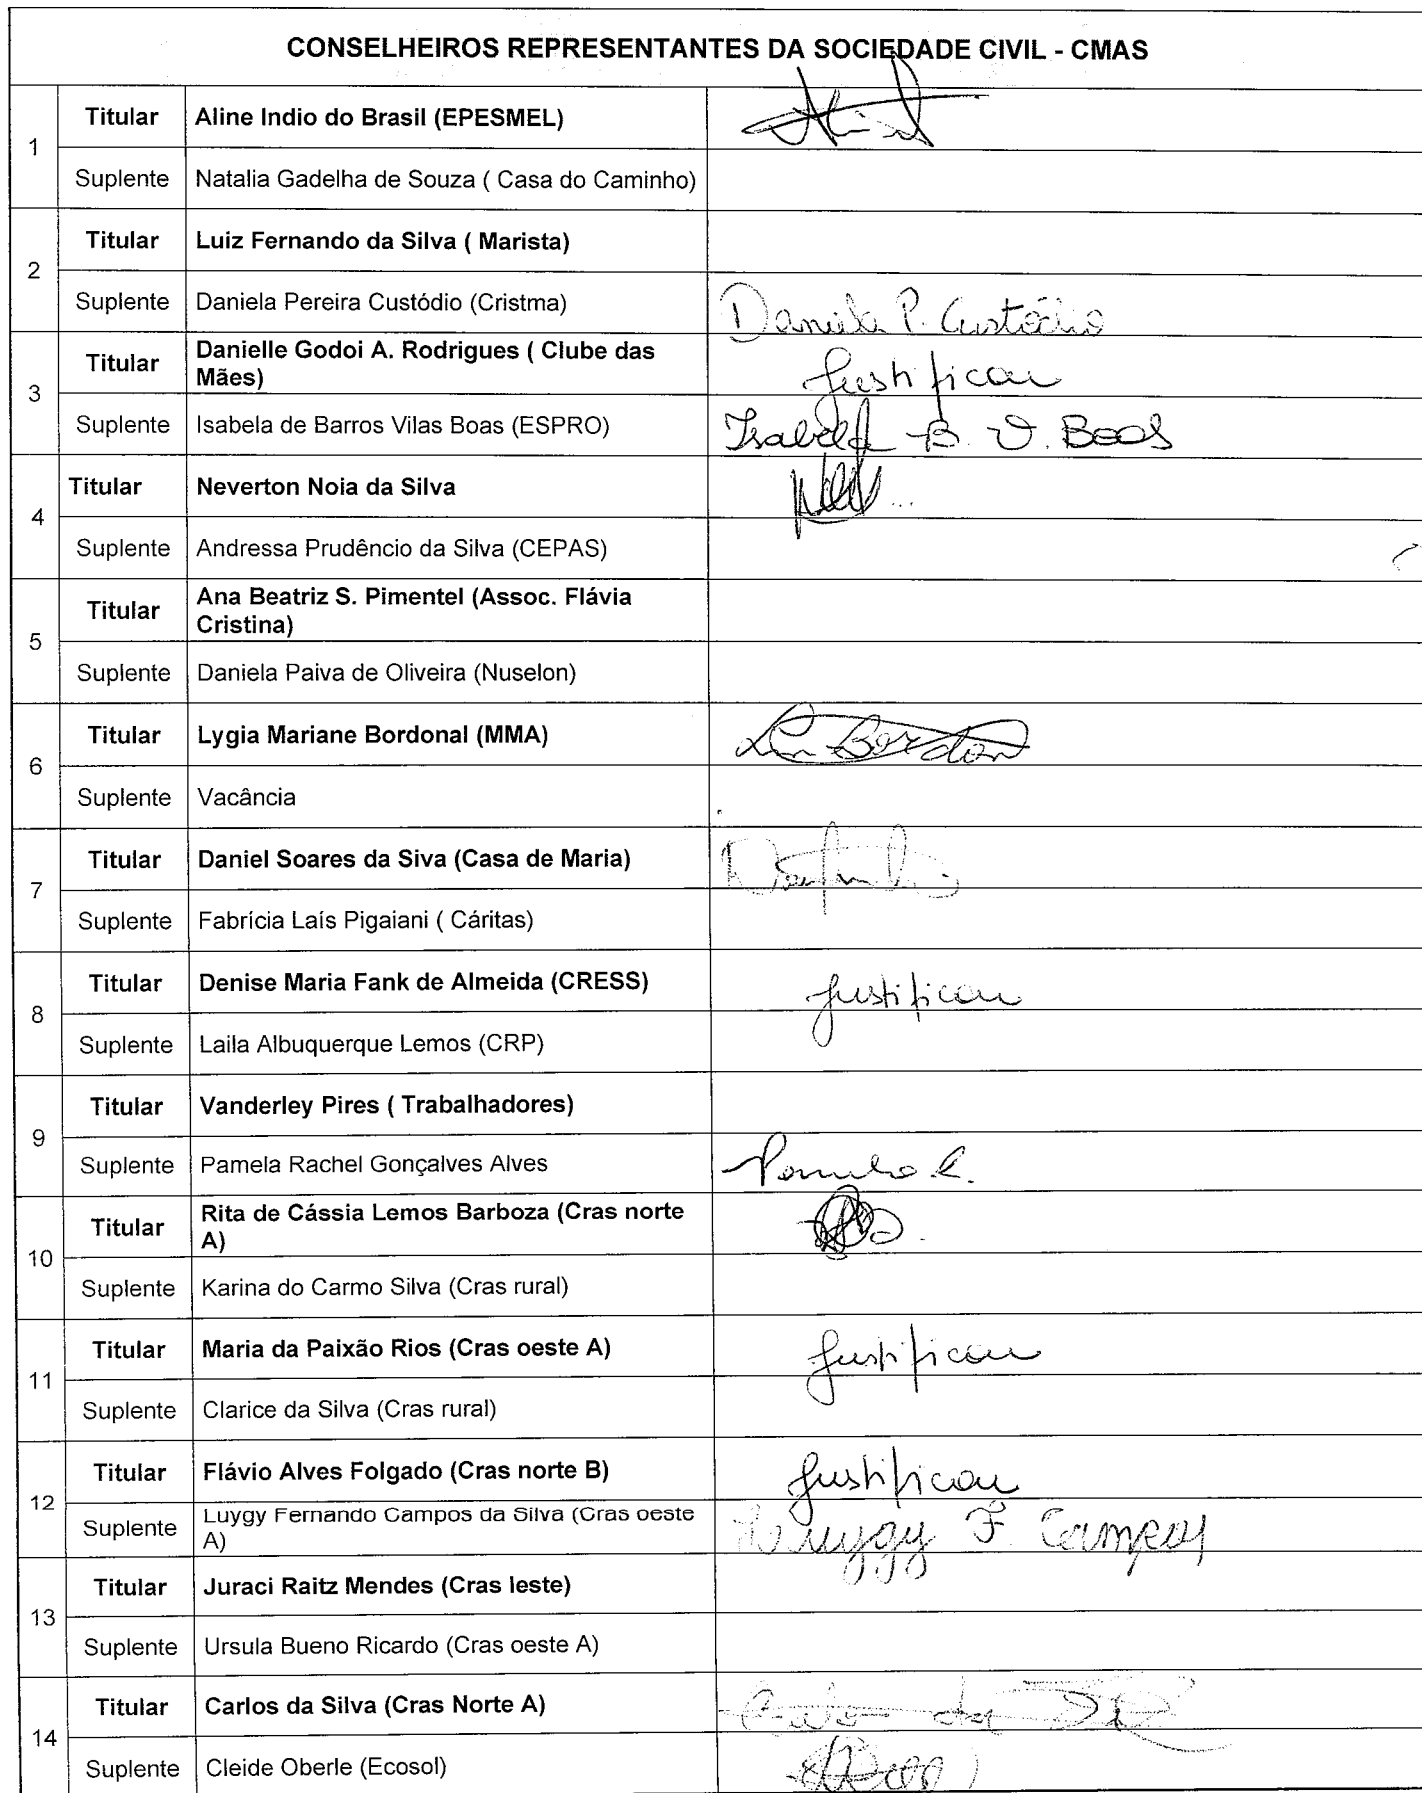 CONSELHEIROS REPRESENTANTES DA SOCIEDADE CIVIL - CMAS
1 Titular Aline Indio do Brasil (EPESMEL)
Suplente Natalia Gadelha de Souza ( Casa do Caminho)
2 Titular Luiz Fernando da Silva ( Marista)
Suplente Daniela Pereira Custódio (Cristma) Daniela P. Custódio
3 Titular Danielle Godoi A. Rodrigues ( Clube das
Mães) Justificou
Suplente Isabela de Barros Vilas Boas (ESPRO) Isabela B. V. Boas
4 Titular Neverton Noia da Silva
Suplente Andressa Prudêncio da Silva (CEPAS)
5 Titular Ana Beatriz S. Pimentel (Assoc. Flávia
Cristina)
Suplente Daniela Paiva de Oliveira (Nuselon)
6 Titular Lygia Mariane Bordonal (MMA)
Suplente Vacância
7 Titular Daniel Soares da Siva (Casa de Maria)
Suplente Fabrícia Laís Pigaiani ( Cáritas)
8 Titular Denise Maria Fank de Almeida (CRESS) Justificou
Suplente Laila Albuquerque Lemos (CRP)
9 Titular Vanderley Pires ( Trabalhadores)
Suplente Pamela Rachel Gonçalves Alves
10 Titular Rita de Cássia Lemos Barboza (Cras norte
A)
Suplente Karina do Carmo Silva (Cras rural)
11 Titular Maria da Paixão Rios (Cras oeste A) Justificou
Suplente Clarice da Silva (Cras rural)
12 Titular Flávio Alves Folgado (Cras norte B) Justificou
Suplente Luygy Fernando Campos da Silva (Cras oeste
A) Luygy F. Campos
13 Titular Juraci Raitz Mendes (Cras leste)
Suplente Ursula Bueno Ricardo (Cras oeste A)
14 Titular Carlos da Silva (Cras Norte A)
Suplente Cleide Oberle (Ecosol)